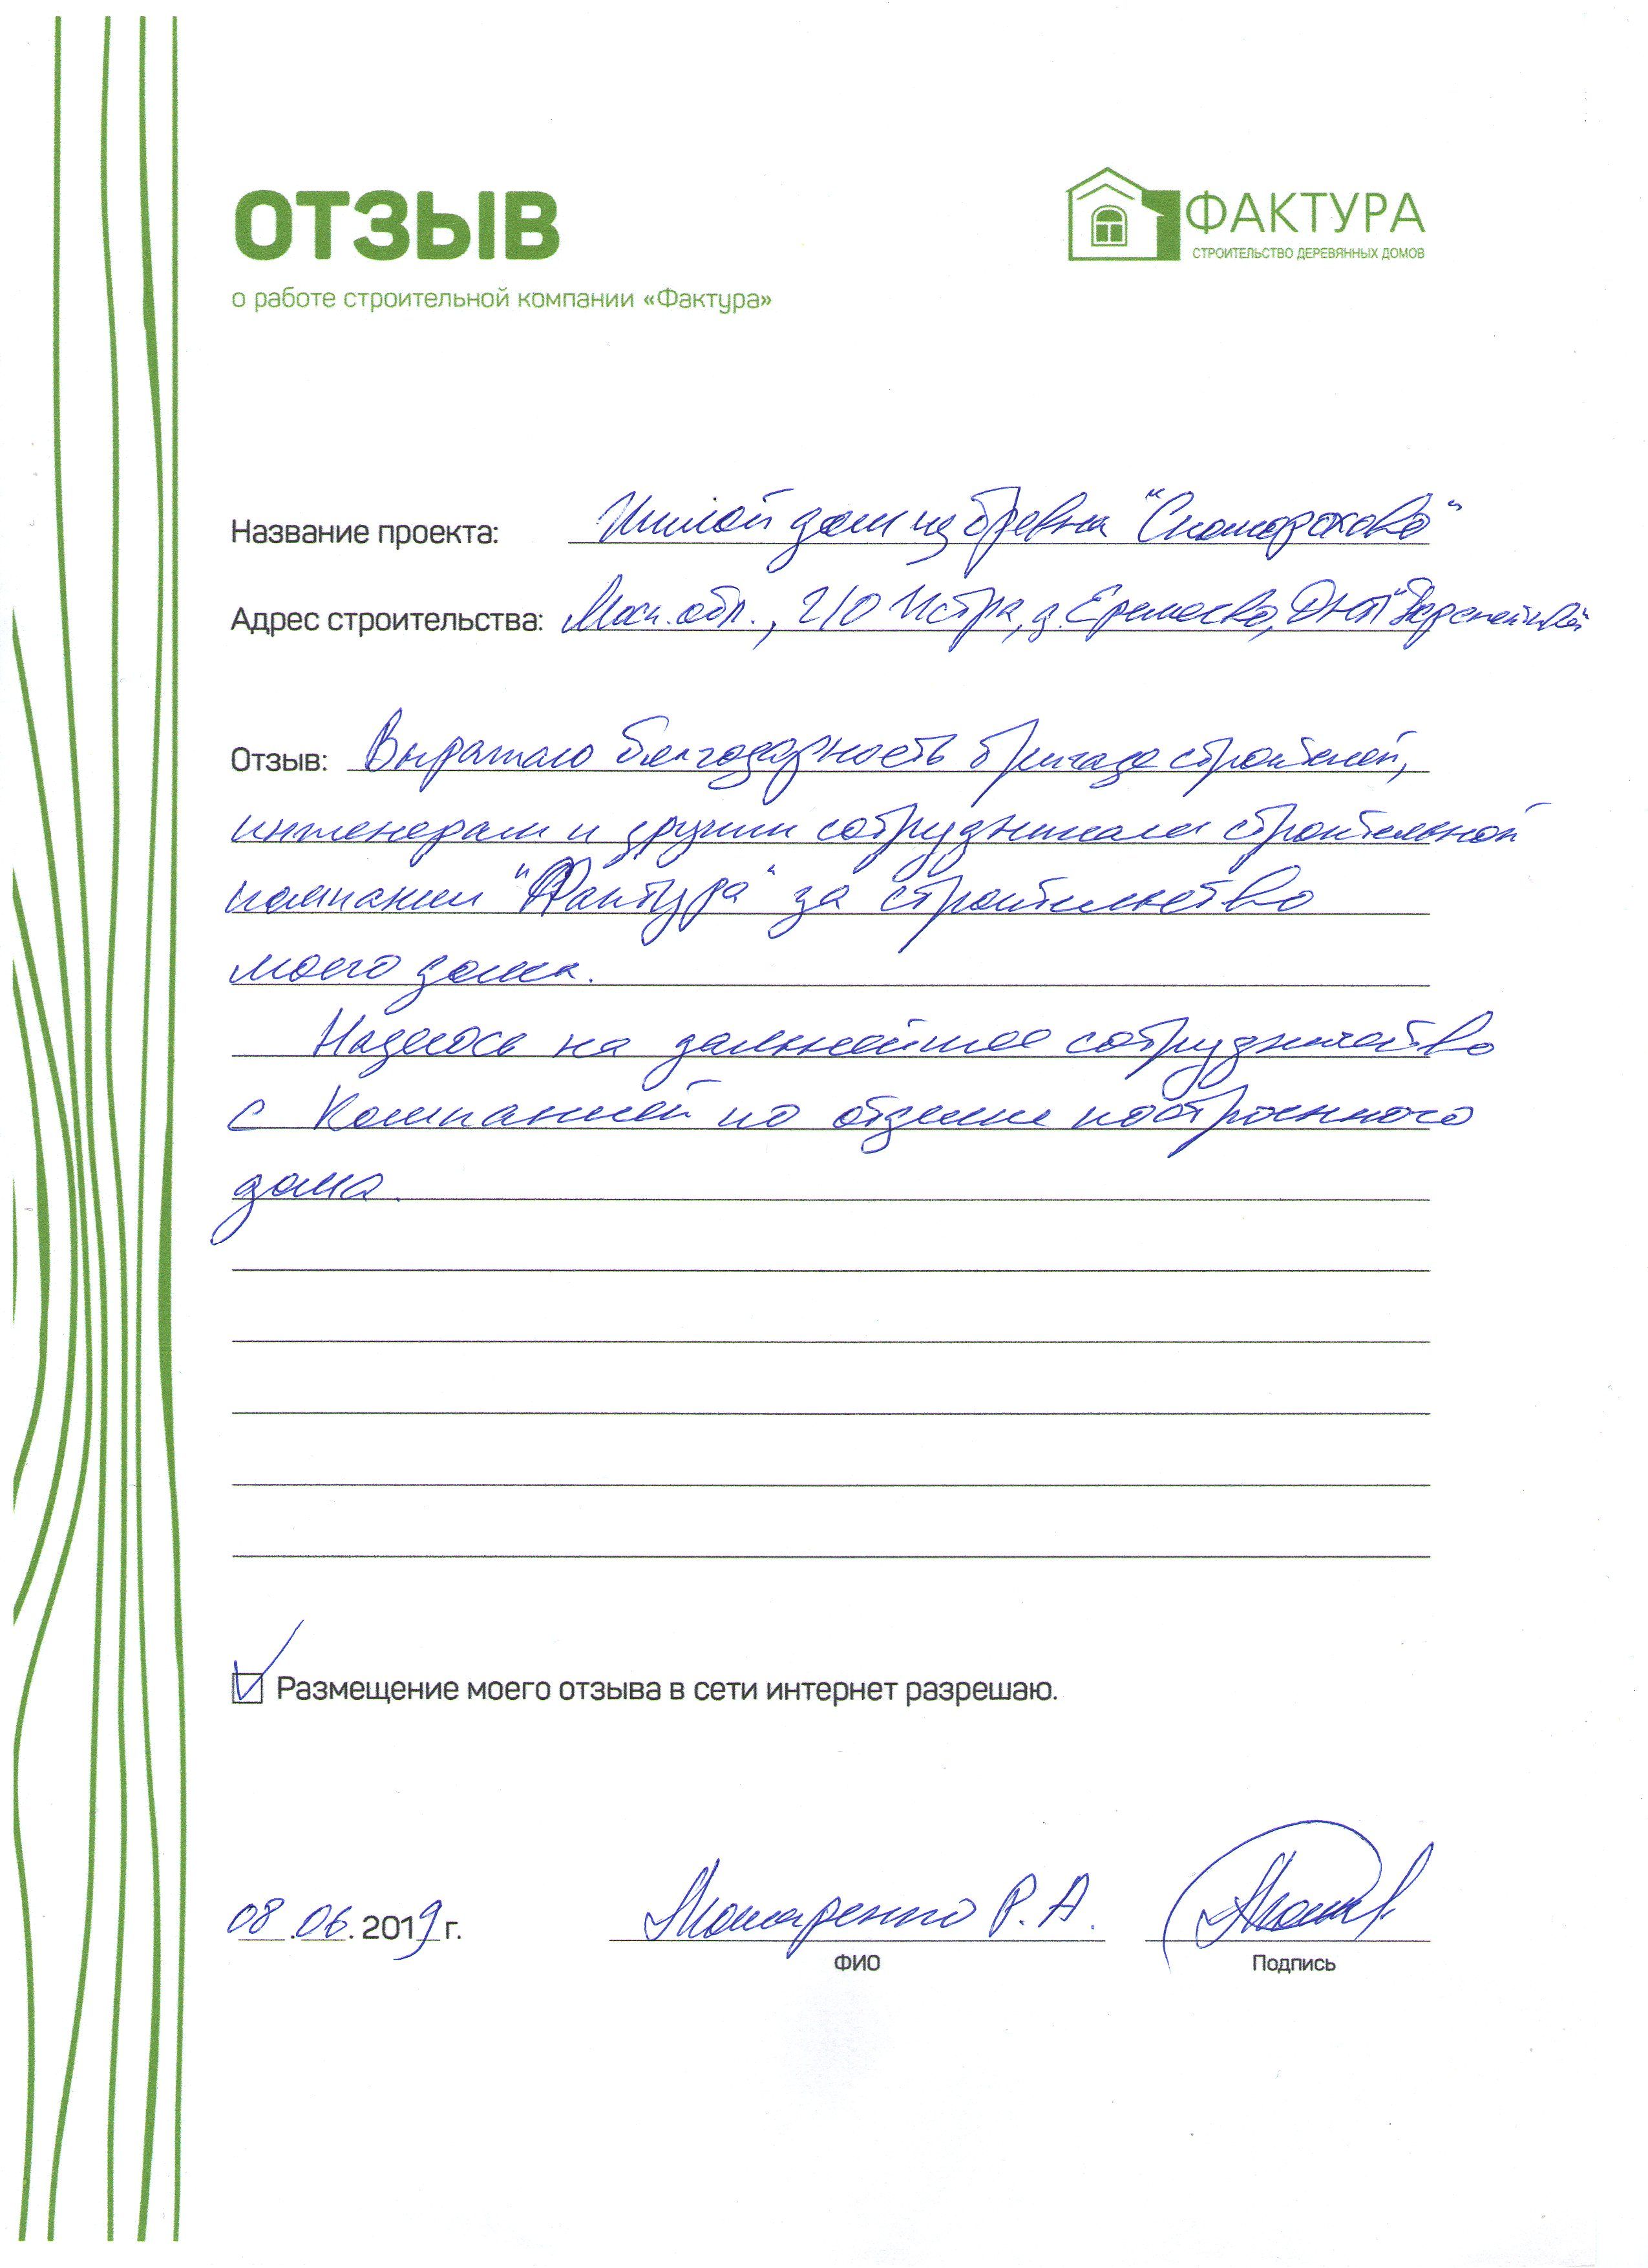 ОТЗЫВ
ФАКТУРА
СТРОИТЕЛЬСТВО ДЕРЕВЯННЫХ ДОМОВ
о работе строительной компании «Фактура»
Название проекта: Жилой дом из бревна "Скоморохово"
Адрес строительства: Моск. обл., г/о Истра, д. Еремеево, ДНП
Отзыв: Выражаю благодарность бригаде строителей,
инженерам и другим сотрудникам строительной
компании "Фактура" за строительство
моего дома.
Надеюсь на дальнейшее сотрудничество
с Компанией по отделке построенного
дома.
Размещение моего отзыва в сети интернет разрешаю.
08.06.2019 г. Р.А.
ФИО
Подпись